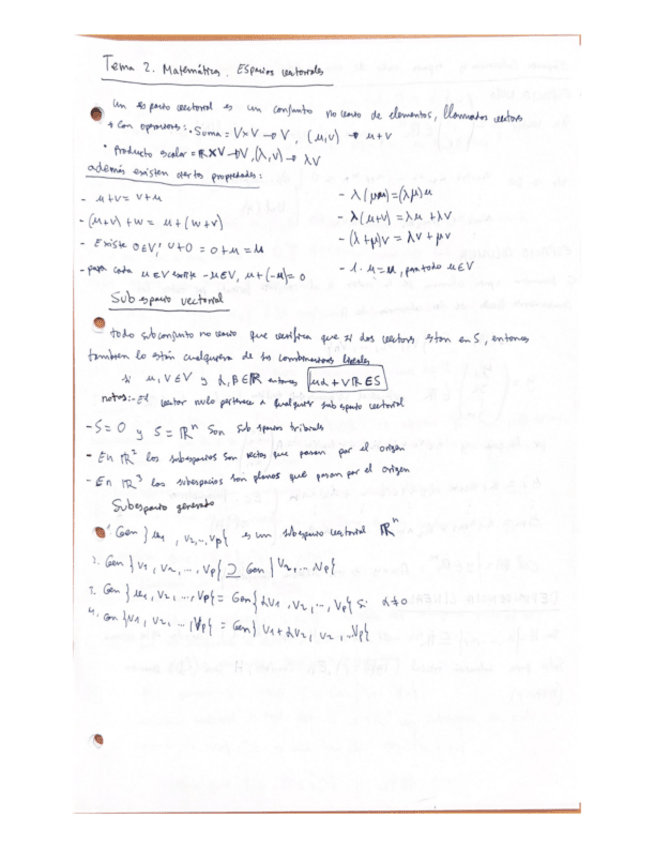 Tema 2. Matemáticas. Espacios vectoriales
Un espacio vectorial es un conjunto no vacío de elementos, llamados vectores
+ Con operaciones: · Suma = V×V → V, (u,v) → u+v
· Producto escalar = R×V → V, (λ,v) → λV
además existen ciertas propiedades:
- u+v = v+u
- (u+v)+w = u+(w+v)
- Existe 0∈V; v+0 = 0+u = u
- para cada u∈V existe -u∈V, u+(-u)=0
- λ(μu)=(λμ)u
- λ(u+v)=λu+λv
- (λ+μ)v = λv+μv
- 1·u=u, para todo u∈V
Subespacio vectorial
todo subconjunto no vacío que verifica que si dos vectores están en S, entonces
también lo están cualquiera de sus combinaciones lineales
si u,v∈V y α,β∈R entonces uα+VR∈S
notas: - El vector nulo pertenece a cualquier subespacio vectorial
- S=0 y S=Rⁿ son sub spacios triviales
- En R² los subespacios son rectos que pasan por el origen
- En R³ los subespacios son planos que pasan por el origen
Subespacio generado
1. Gen }u₁, v₂,..., vp{ es um subespacio vectorial Rⁿ
2. Gen }v₁, v₂, ..., vp{ ⊇ Gen }v₂,...,vp{
3. Gen }u₁, v₂, ..., vp{ = Gen }αv₁, v₂, ..., vp{ si α≠0
4. Gen }v₁, v₂, ..., vp{ = Gen }v₁+αv₂, v₂, ...vp{